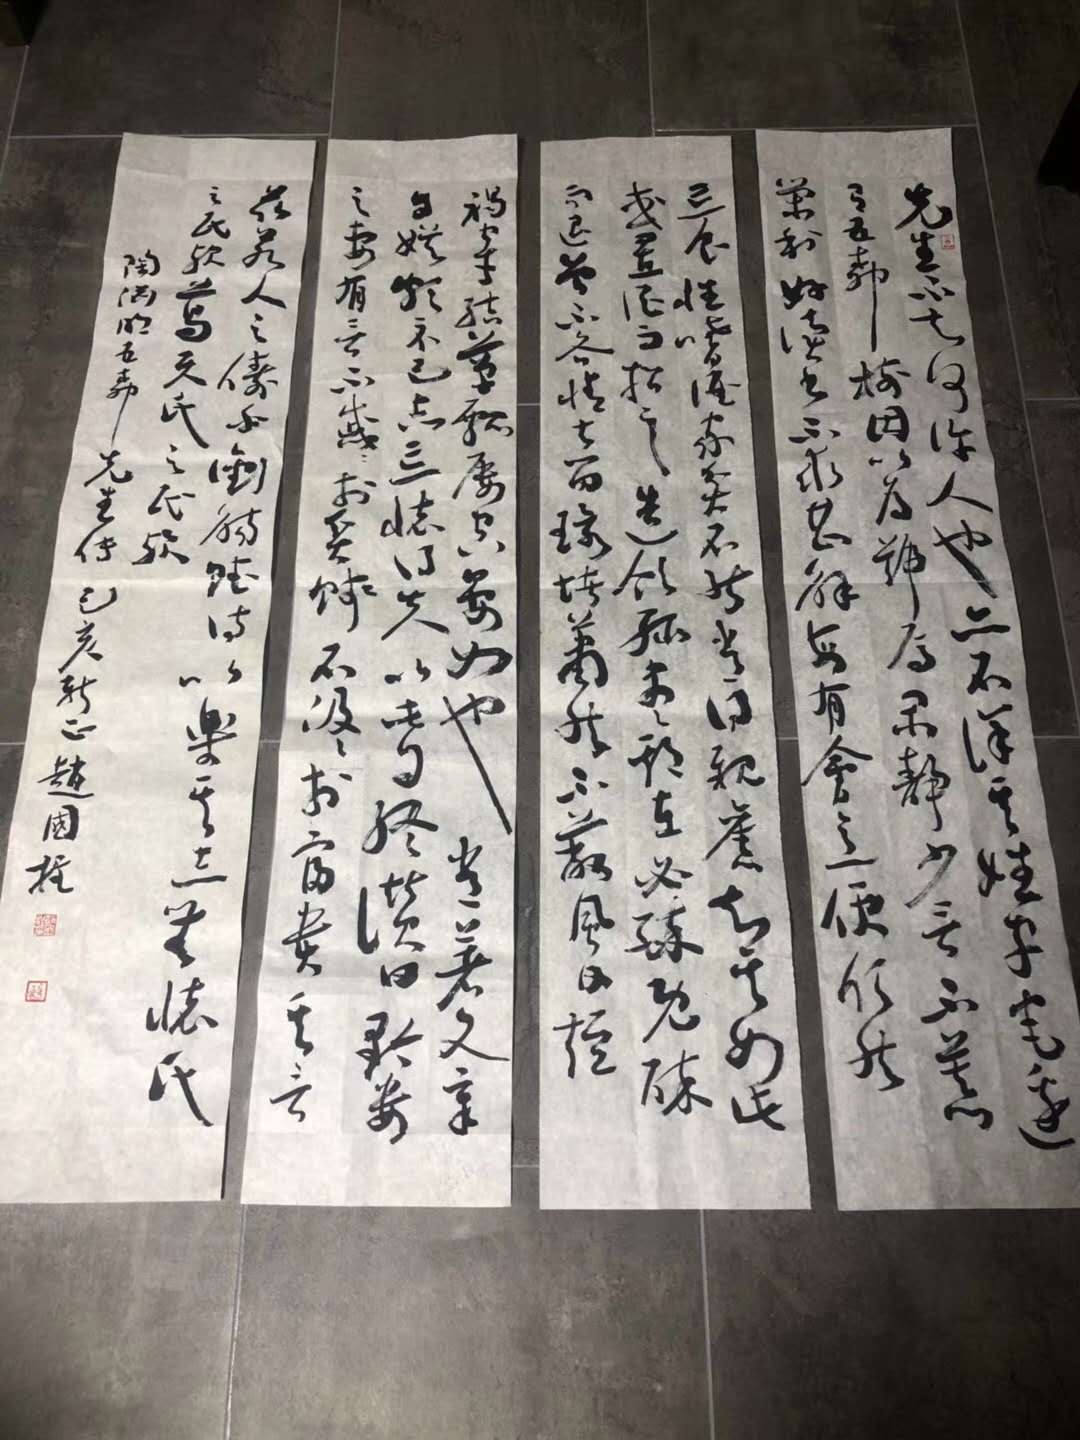 先生不知何許人也亦不詳其姓字宅邊
有五柳樹因以為號焉閑靜少言不慕
榮利好讀書不求甚解每有會意便欣然
忘食性嗜酒家貧不能常得親舊知其如此
或置酒而招之造飲輒盡期在必醉既醉
而退曾不吝情去留環堵蕭然不蔽風日短
褐穿結簞瓢屢空晏如也常著文章
自娛頗示己志忘懷得失以此自終贊曰黔婁
之妻有言不戚戚於貧賤不汲汲於富貴其言
茲若人之儔乎銜觴賦詩以樂其志無懷氏
之民歟葛天氏之民歟
陶淵明五柳先生傳 己亥新正 趙國